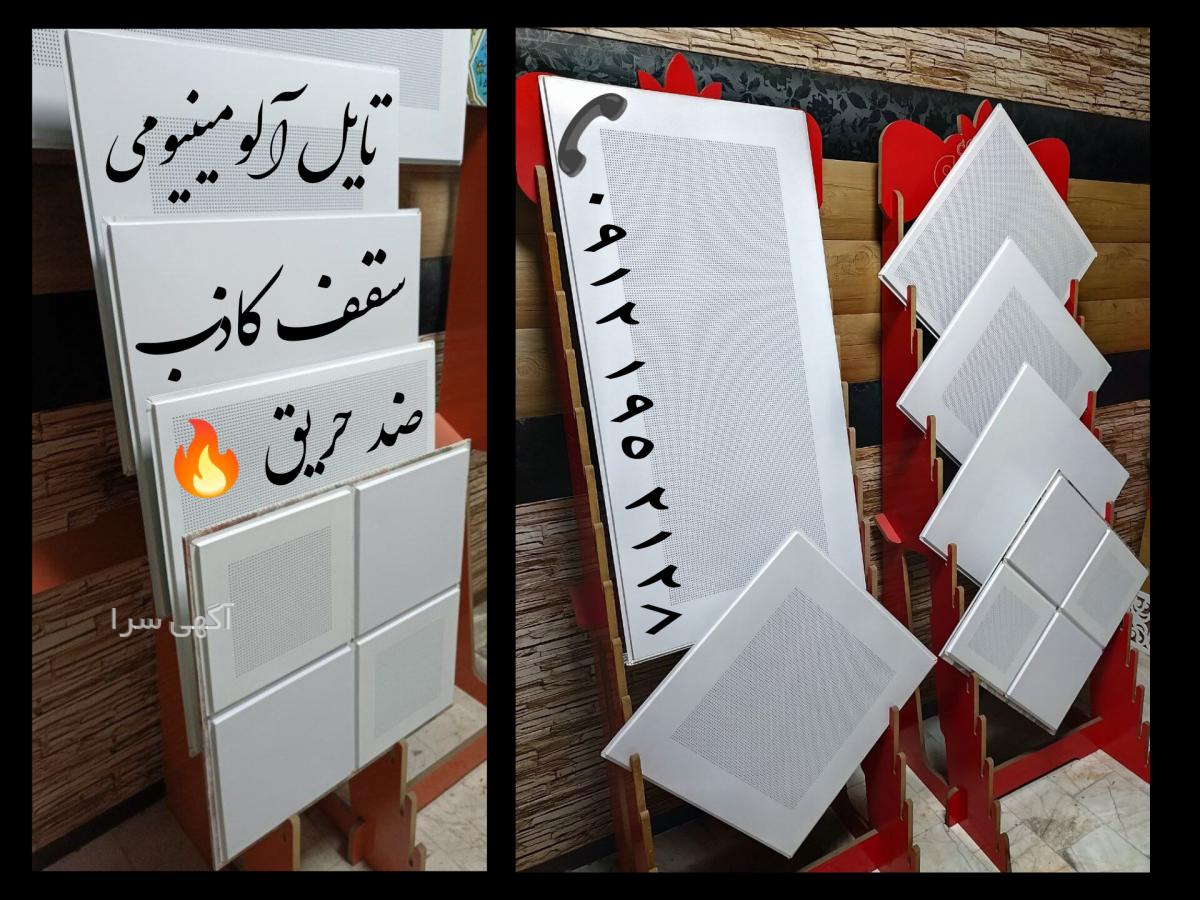 تایل آلومینیومی
سقف کاذب
ضد حریق
آگهی سرا
۰۹۱۲۱۹۵۲۱۲۸